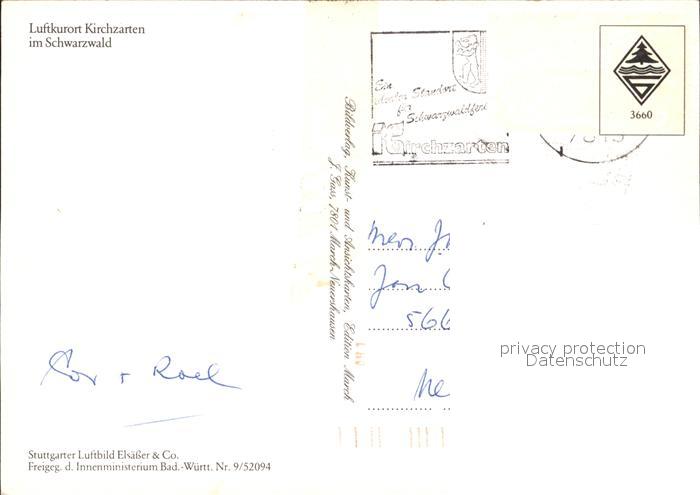 Luftkurort Kirchzarten
im Schwarzwald
Ein
idealer Standort
für
Ihre Schwarzwaldferien
Kirchzarten
3660
Bildverlag, Kunst- und Ansichtskarten, Edition March
J. Gass, 7801 March-Neuershausen
Mevr J
Jan
566
Ne
Cor + Roel
privacy protection
Datenschutz
Stuttgarter Luftbild Elsäßer & Co.
Freigeg. d. Innenministerium Bad.-Württ. Nr. 9/52094